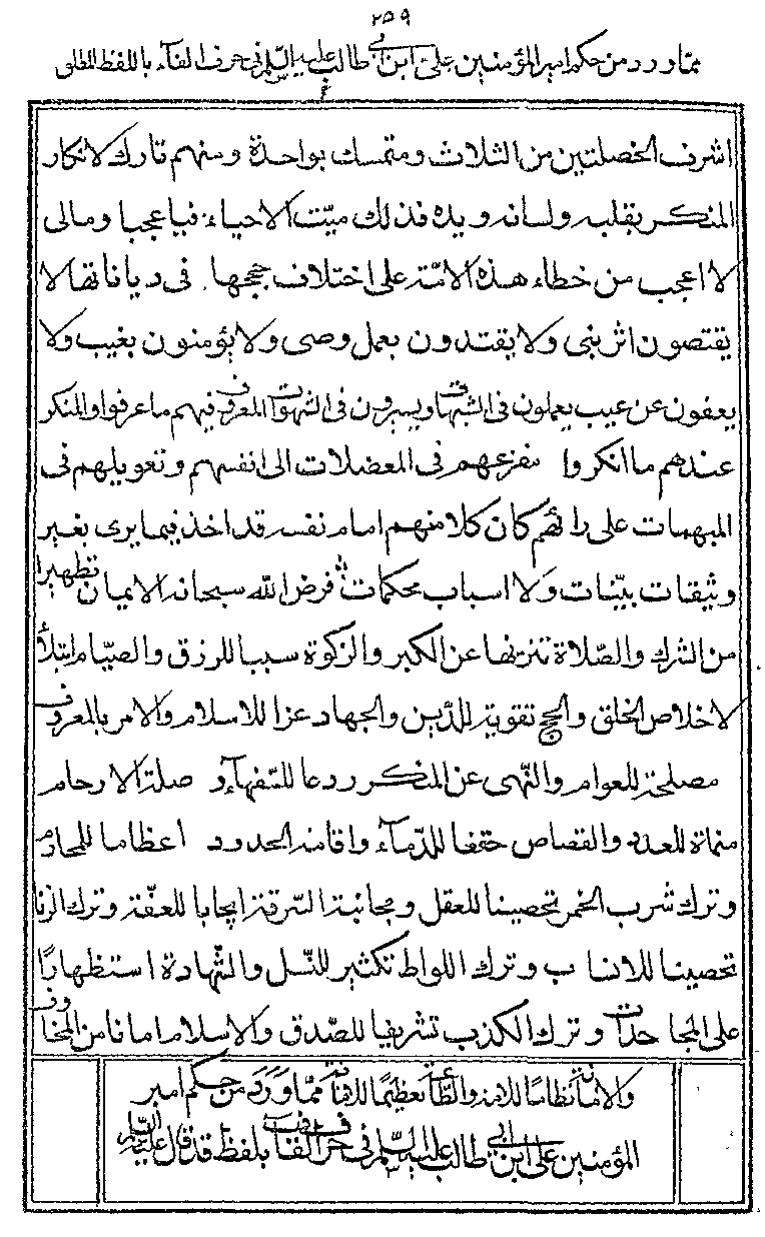 ٢٥٩
ممّا ورد من حكم امير المؤمنين على ابن ابى طالب عليه السّلم فى حرف الفآء باللفظ المطلق
اشرف الخصلتين من الثلاث ومتمسك بواحدة ومنهم تارك لانكار
المنكر بقلبه ولسانه ويده فذلك ميّت الاحياء فيا عجبا ومالى
لا اعجب من خطاء هذه الامّة على اختلاف حججها فى دياناتها لا
يقتصون اثر نبى ولا يقتدون بعمل وصى ولا يؤمنون بغيب ولا
يعفون عن عيب يعملون فى الشبهات ويسيرون فى الشهوات المعروف فيهم ما عرفوا والمنكر
عندهم ما انكروا مفزعهم فى المعضلات الى انفسهم وتعويلهم فى
المبهمات على رائهم كان كلا منهم امام نفسه قد اخذ فيما يرى بغير
وثيقات بيّنات ولا اسباب محكمات فرض الله سبحانه الايمان تطهيرا
من الشرك والصّلاة تنزيها عن الكبر والزكوة سببا للرزق والصيّام ابتلأ
لاخلاص الخلق والحج تقوية للدّين والجهاد عزا للاسلام والامر بالمعروف
مصلحة للعوام والنّهى عن المنكر ردعا للسّفهآء و صلة الارحام
منماة للعدد والقصاص حقنا للدّمآء واقامة الحدود اعظاما للمحارم
وترك شرب الخمر تحصينا للعقل ومجانبة السّرقة ايجابا للعفّة وترك الزنا
تحصينا للانساب وترك اللواط تكثير للنّسل والشّهادة استظهارًا
على المجاحدات وترك الكذب تشريفا للصّدق والاسلام امانا من المخاوف
والامانة نظامًا للامة والطّاعة تعظيمًا للامامة ممّا وَرَدَ من حكم امير
المؤمنين على ابن ابى طالب عليه السّلم فى حرف الفآء بلفظ قد قال عليه السّلام